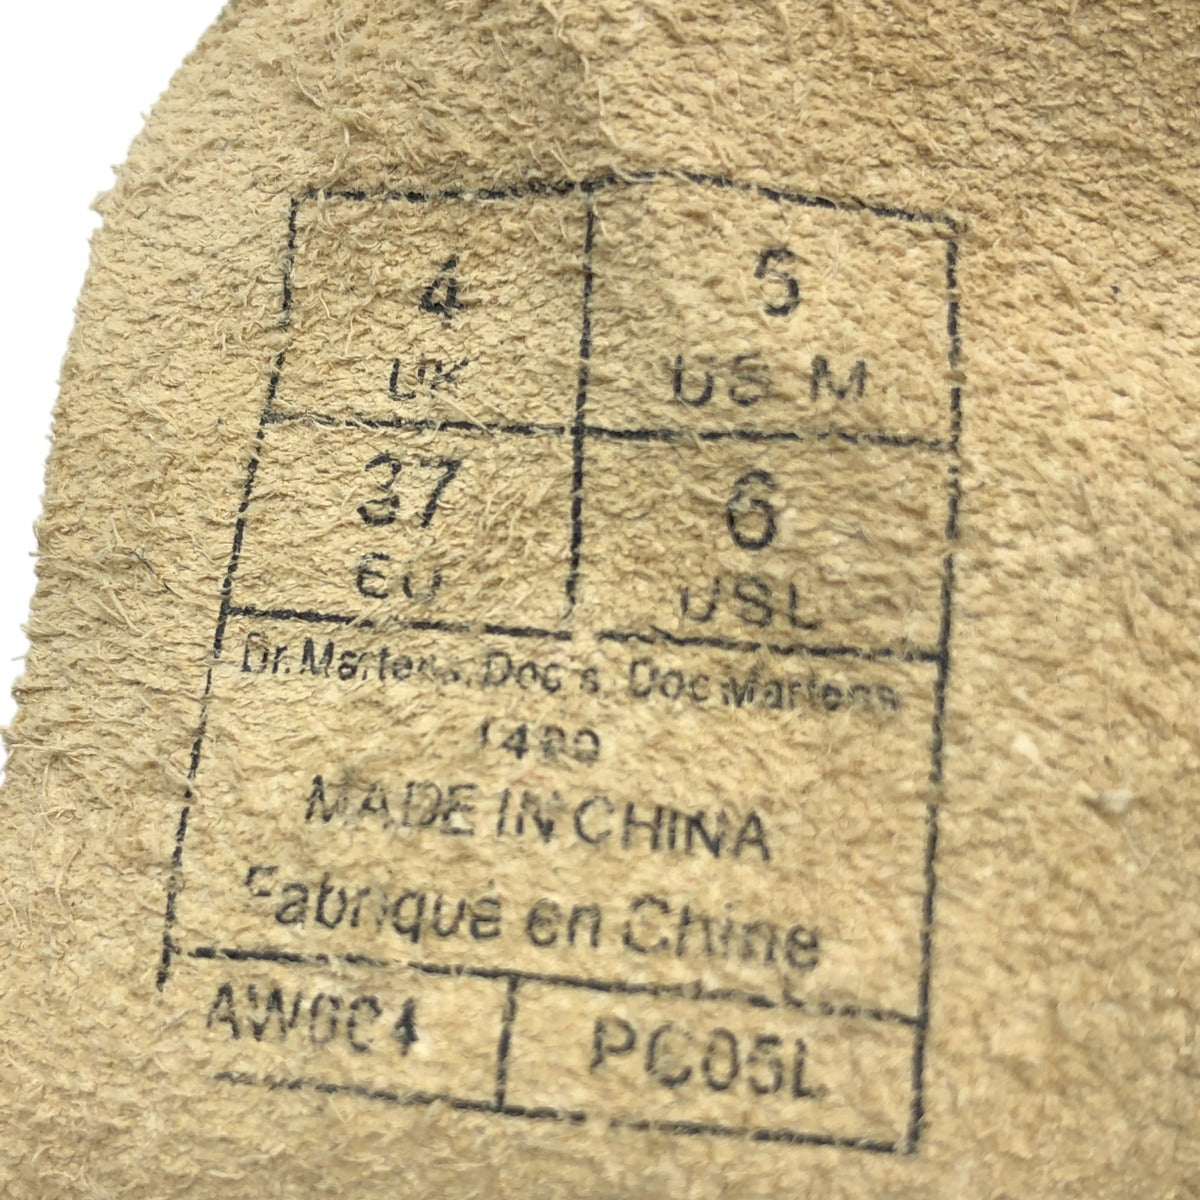 4
UK
5
US M
37
EU
6
USL
Dr. Martens, Doc's, Doc Martens
MADE IN CHINA
Fabriqué en Chine
PC05L